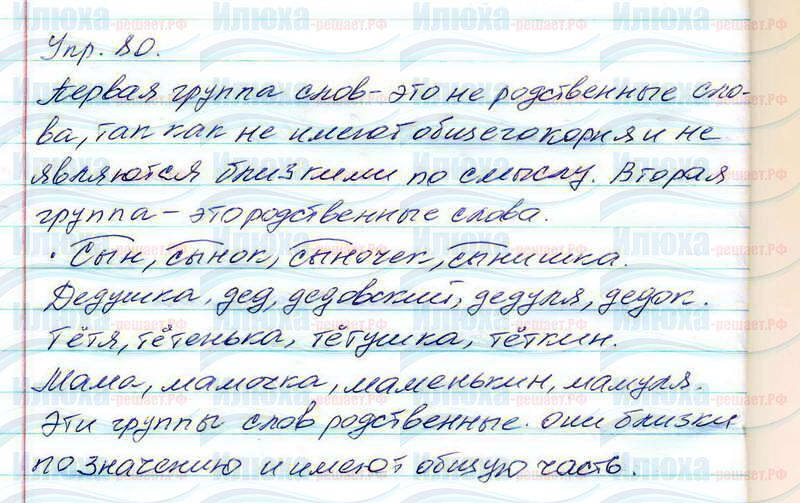 Упр. 80.
Первая группа слов - это не родственные сло-
ва, так как не имеют общего корня и не
являются близкими по смыслу. Вторая
группа - это родственные слова.
· Сын, сынок, сыночек, сынишка.
Дедушка, дед, дедовский, дедуля, дедок.
Тётя, тётенька, тётушка, тёткин.
Мама, мамочка, маменькин, мамуля.
Эти группы слов родственные. Они близки
по значению и имеют общую часть.
Илюха
-решает.РФ